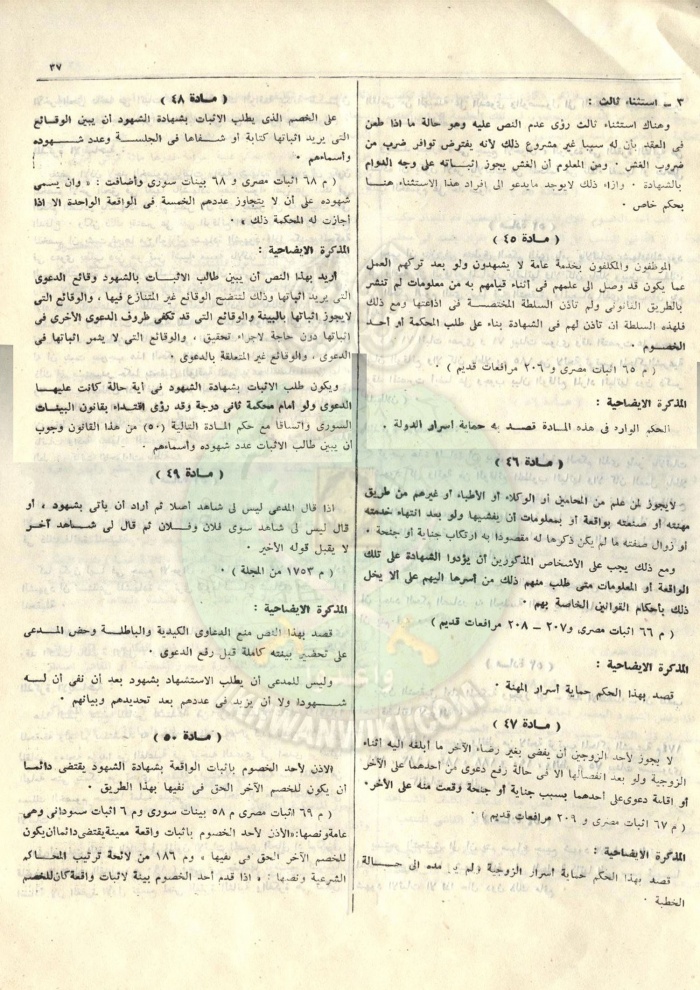 ٣٧
٣ ــ استثناء ثالث :
وهناك استثناء ثالث رؤى عدم النص عليه وهو حالة ما اذا طعن
فى العقد بأن له سببا غير مشروع ذلك لأنه يفترض توافر ضرب من
ضروب الغش ٠ ومن المعلوم أن الغش يجوز اثباته على وجه الدوام
بالشهادة ٠ وازاء ذلك لايوجد مايدعو الى افراد هذا الاستثناء هنا
بحكم خاص ٠
( مادة ٤٥ )
الموظفون والمكلفون بخدمة عامة لا يشهدون ولو بعد تركهم العمل
عما يكون قد وصل الى علمهم فى أثناء قيامهم به من معلومات لم تنشر
بالطريق القانونى ولم تأذن السلطة المختصة فى اذاعتها ومع ذلك
فلهذه السلطة ان تأذن لهم فى الشهادة بناء على طلب المحكمة أو أحد
الخصوم ٠
( م ٦٥ اثبات مصرى و ٢٠٦ مرافعات قديم ) ٠
المذكرة الايضاحية :
الحكم الوارد فى هذه المادة قصد به حماية أسرار الدولة ٠
( مادة ٤٦ )
لايجوز لمن علم من المحامين أو الوكلاء أو الأطباء أو غيرهم من طريق
مهنته أو صنعته بواقعة أو بمعلومات أن يفشيها ولو بعد انتهاء خدمته
أو زوال صفته ما لم يكن ذكرها له مقصودا به ارتكاب جناية أو جنحة ٠
ومع ذلك يجب على الأشخاص المذكورين أن يؤدوا الشهادة على تلك
الواقعة أو المعلومات متى طلب منهم ذلك من أسرها اليهم على ألا يخل
ذلك بأحكام القوانين الخاصة بهم ٠
( م ٦٦ اثبات مصرى و٢٠٧ ــ ٢٠٨ مرافعات قديم ) ٠
المذكرة الايضاحية :
قصد بهذا الحكم حماية أسرار المهنة ٠
( مادة ٤٧ )
لا يجوز لأحد الزوجين أن يفضى بغير رضاء الآخر ما أبلغه اليه أثناء
الزوجية ولو بعد انفصالها الا فى حالة رفع دعوى من أحدهما على الآخر
أو اقامة دعوى على أحدهما بسبب جناية أو جنحة وقعت منه على الآخر ٠
( م ٦٧ اثبات مصرى و ٢٠٩ مرافعات قديم ) ٠
المذكرة الايضاحية :
قصد بهذا الحكم حماية أسرار الزوجية ولم مده الى حالة
الخطبة ٠
( مادة ٤٨ )
على الخصم الذى يطلب الاثبات بشهادة الشهود أن يبين الوقائع
التى يريد اثباتها كتابة أو شفاها فى الجلسة وعدد شهوده
وأسماءهم ٠
( م ٦٨ اثبات مصرى و ٦٨ بينات سورى وأضافت : « وان يسمى
شهوده على أن لا يتجاوز عددهم الخمسة فى الواقعة الواحدة الا اذا
أجازت له المحكمة ذلك » ٠
المذكرة الايضاحية :
أريد بهذا النص أن يبين طالب الاثبات بالشهود وقائع الدعوى
التى يريد اثباتها وذلك لتتضح الوقائع غير المتنازع فيها ، والوقائع التى
لايجوز اثباتها بالبينة والوقائع التى قد تكفى ظروف الدعوى الأخرى فى
اثباتها دون حاجة لاجراء تحقيق ، والوقائع التى لا يثمر اثباتها فى
الدعوى ، والوقائع غير المتعلقة بالدعوى ٠
ويكون طلب الاثبات بشهادة الشهود فى أية حالة كانت عليها
الدعوى ولو امام محكمة ثانى درجة وقد رؤى اقتداء بقانون البينات
السورى واتساقا مع حكم المادة التالية (٥٠) من هذا القانون وجوب
أن يبين طالب الاثبات عدد شهوده وأسماءهم ٠
( مادة ٤٩ )
اذا قال المدعى ليس لى شاهد أصلا ثم أراد أن يأتى بشهود ، أو
قال ليس لى شاهد سوى فلان وفلان ثم قال لى شاهد آخر
لا يقبل قوله الأخير ٠
( م ١٧٥٣ من المجلة ) ٠
المذكرة الايضاحية :
قصد بهذا النص منع الدعاوى الكيدية والباطلة وحض المدعى
على تحضير بينته كاملة قبل رفع الدعوى ٠
وليس للمدعى أن يطلب الاستشهاد بشهود بعد أن نفى أن له
شهودا ولا أن يزيد فى عددهم بعد تحديدهم وبيانهم ٠
( مادة ٥٠ )
الاذن لأحد الخصوم باثبات الواقعة بشهادة الشهود يقتضى دائما
أن يكون للخصم الآخر الحق فى نفيها بهذا الطريق ٠
( م ٦٩ اثبات مصرى م ٥٨ بينات سورى وم ٦ اثبات سودانى وهى
عامة ونصها: «الاذن لأحد الخصوم باثبات واقعة معينة يقتضى دائما أن يكون
للخصم الآخر الحق فى نفيها » وم ١٨٦ من لائحة ترتيب المحاكم
الشرعية ونصها : « اذا قدم أحد الخصوم بينة لاثبات واقعة كان للخصم